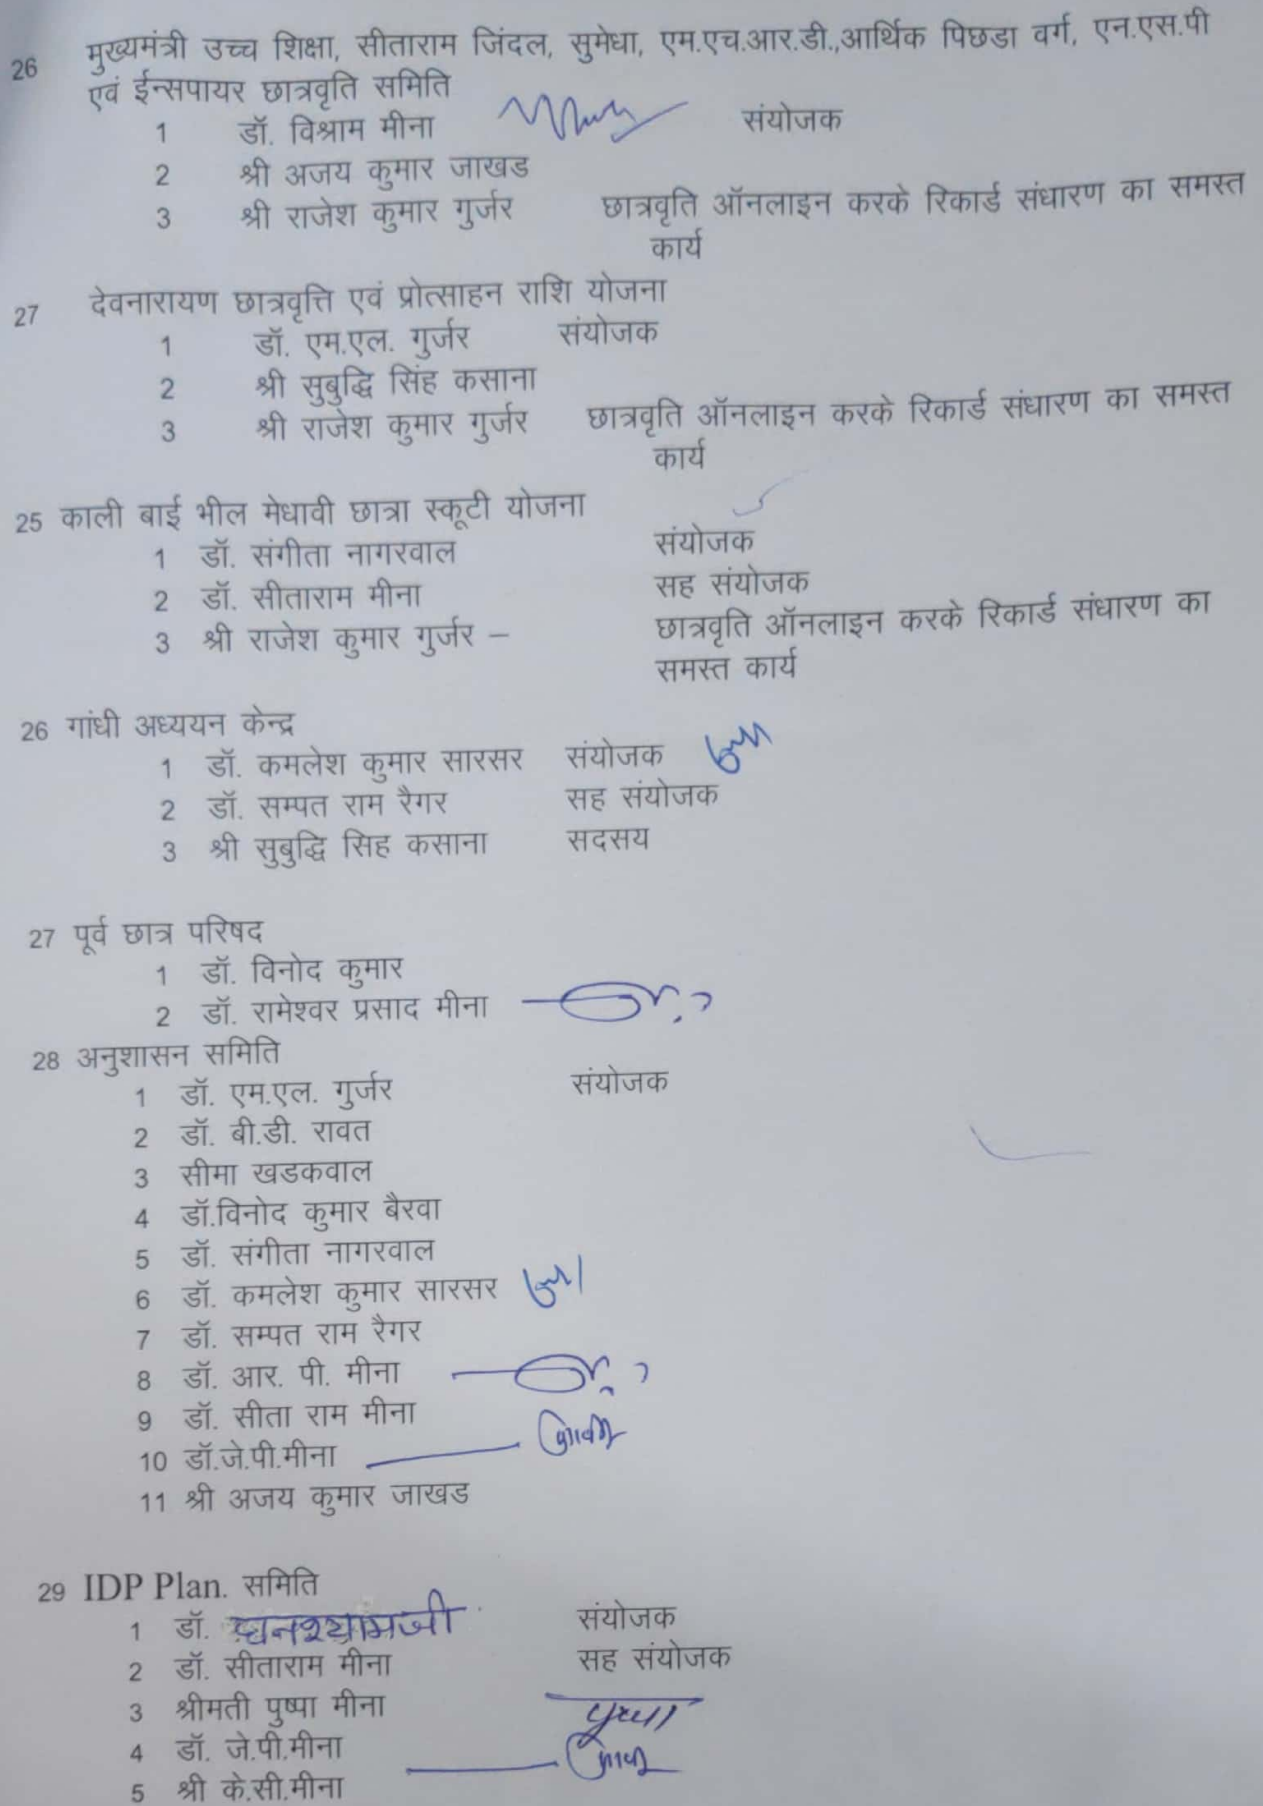 26 मुख्यमंत्री उच्च शिक्षा, सीताराम जिंदल, सुमेधा, एम.एच.आर.डी.,आर्थिक पिछडा वर्ग, एन.एस.पी
एवं ईन्सपायर छात्रवृति समिति
1 डॉ. विश्राम मीना संयोजक
2 श्री अजय कुमार जाखड
3 श्री राजेश कुमार गुर्जर छात्रवृति ऑनलाइन करके रिकार्ड संधारण का समस्त
कार्य
27 देवनारायण छात्रवृत्ति एवं प्रोत्साहन राशि योजना
1 डॉ. एम.एल. गुर्जर संयोजक
2 श्री सुबुद्धि सिंह कसाना
3 श्री राजेश कुमार गुर्जर छात्रवृति ऑनलाइन करके रिकार्ड संधारण का समस्त
कार्य
25 काली बाई भील मेधावी छात्रा स्कूटी योजना
1 डॉ. संगीता नागरवाल संयोजक
2 डॉ. सीताराम मीना सह संयोजक
3 श्री राजेश कुमार गुर्जर – छात्रवृति ऑनलाइन करके रिकार्ड संधारण का
समस्त कार्य
26 गांधी अध्ययन केन्द्र
1 डॉ. कमलेश कुमार सारसर संयोजक
2 डॉ. सम्पत राम रैगर सह संयोजक
3 श्री सुबुद्धि सिह कसाना सदसय
27 पूर्व छात्र परिषद
1 डॉ. विनोद कुमार
2 डॉ. रामेश्वर प्रसाद मीना
28 अनुशासन समिति
1 डॉ. एम.एल. गुर्जर संयोजक
2 डॉ. बी.डी. रावत
3 सीमा खडकवाल
4 डॉ.विनोद कुमार बैरवा
5 डॉ. संगीता नागरवाल
6 डॉ. कमलेश कुमार सारसर
7 डॉ. सम्पत राम रैगर
8 डॉ. आर. पी. मीना
9 डॉ. सीता राम मीना
10 डॉ.जे.पी.मीना
11 श्री अजय कुमार जाखड
29 IDP Plan. समिति
1 डॉ. घनश्यामजी संयोजक
2 डॉ. सीताराम मीना सह संयोजक
3 श्रीमती पुष्पा मीना
4 डॉ. जे.पी.मीना
5 श्री के.सी.मीना